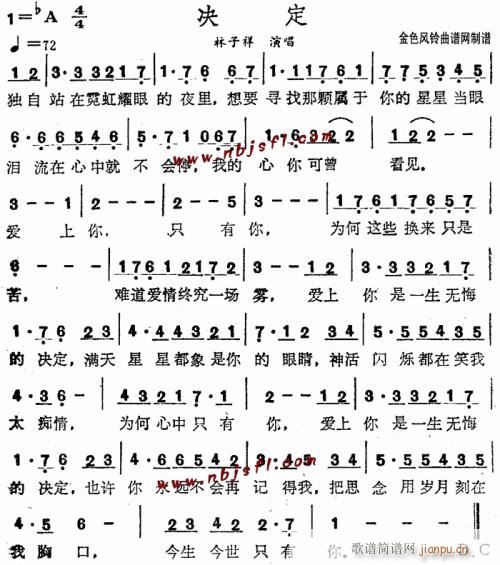 决 定
1=♭A 4/4
♩=72
林子祥 演唱
金色风铃曲谱网制谱
1 2 | 3·3 3 2 1 7 | 1·7 6 6 7 | 1·1 1 7 6 1 | 7·6 7 7 1 |
独自 站在霓虹耀眼 的 夜里，想要 寻找那颗属于 你的星星当眼
6·6 6 5 4 6 | 5·7 1 0 6 7 | 1·6 3 2 2 | 1 2 2 - - |
泪 流在心中就 不 会停，我的 心 你可曾 看见。
www.nbjsfl.com
3 - - 1 | 2 - - - | 2 - - 5 | 3 - - - | 1 7 6 1 7 6 5 7 |
爱 上 你， 只 有 你， 为何这些换来只是
6 - - - | 1 7 6 1 2 1 7 2 | 3 - - 1 2 | 3·3 3 6 5 3 |
苦， 难道爱情终究一场 雾，爱上 你 是一生无悔
1·7 6 2 3 | 4·3 2 1 7 1 | 7·1 2 2 3 | 5·5 5 4 3 5 |
的 决定，满天 星 星都象是你 的 眼睛，神活 闪 烁都在笑我
4·3 6 - | 4 3 2 1 7·1 | 3 - - 1 2 | 3·3 3 6 5 3 |
太 痴情， 为何心中只有 你，爱上 你 是一生无悔
1·7 6 2 3 | 4·6 6 5 4 2 | 3·4 5 2 3 | 5·5 5 4 3 5 |
的 决定，也许 你 永远不会再 记 得我，把思 念 用岁月刻在
www.nbjsfl.com
4·5 | - - | 2 4 4 3 2 2·7 |
我 胸 口， 今生 今世 只 有 你。
D.C
歌谱简谱网
jianpu.cn